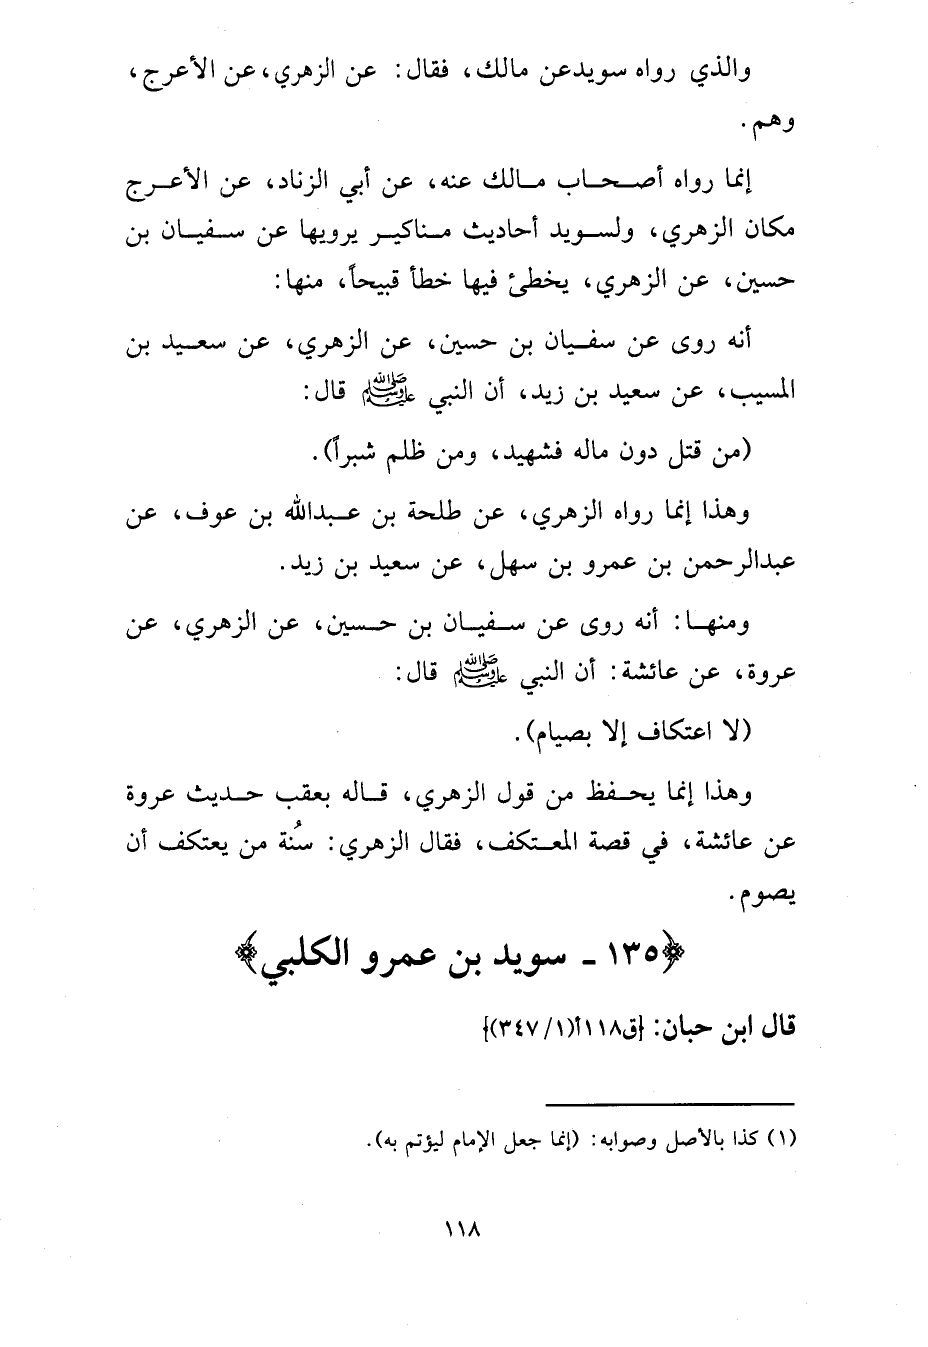 والذي رواه سويدعن مالك، فقال: عن الزهري،عن الأعرج،
وهم.
إنما رواه أصحاب مالك عنه، عن أبي الزناد، عن الأعرج
مكان الزهري، ولسويد أحاديث مناكير يرويها عن سفيان بن
حسين، عن الزهري، يخطئ فيها خطأ قبيحاً، منها:
أنه روى عن سفيان بن حسين، عن الزهري، عن سعيد بن
المسيب، عن سعيد بن زيد، أن النبي ﷺ قال:
(من قتل دون ماله فشهيد، ومن ظلم شبراً).
وهذا إنما رواه الزهري، عن طلحة بن عبدالله بن عوف، عن
عبدالرحمن بن عمرو بن سهل، عن سعيد بن زيد.
ومنها: أنه روى عن سفيان بن حسين، عن الزهري، عن
عروة، عن عائشة: أن النبي ﷺ قال:
(لا اعتكاف إلا بصيام).
وهذا إنما يحفظ من قول الزهري، قاله بعقب حديث عروة
عن عائشة، في قصة المعتكف، فقال الزهري: سُنة من يعتكف أن
يصوم.
﴿١٣٥ - سويد بن عمرو الكلبي﴾
قال ابن حبان: {ق١١٨أ(٣٤٧/١)}
(١) كذا بالأصل وصوابه: (إنما جعل الإمام ليؤتم به).
١١٨